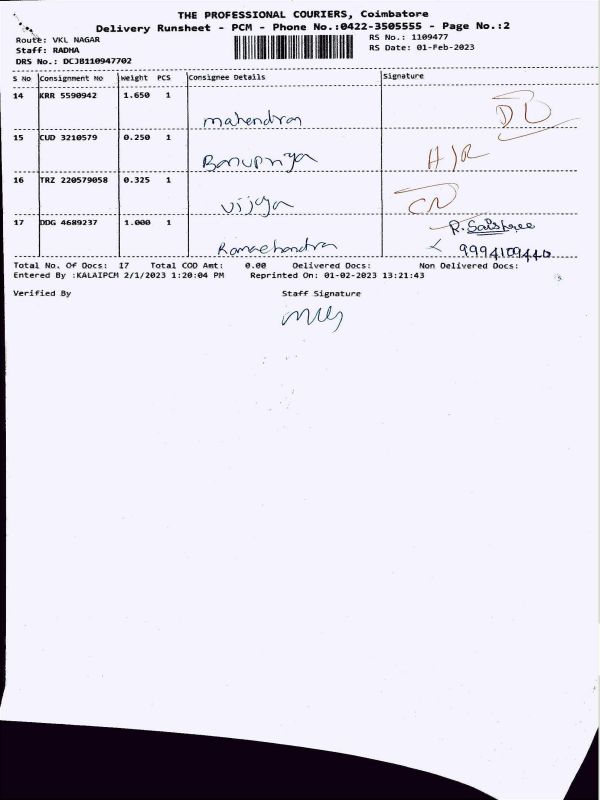 THE PROFESSIONAL COURIERS, Coimbatore
Delivery Runsheet - PCM - Phone No.:0422-3505555 - Page No.:2
Route: VKL NAGAR
RS No.: 1109477
Staff: RADHA
RS Date: 01-Feb-2023
DRS No.: DCJB110947702
S No Consignment No Weight PCS Consignee Details Signature
14 KRR 5590942 1.650 1
mahendran DL
15 CUD 3210579 0.250 1
Banupriya H/R
16 TRZ 220579058 0.325 1
vijaya CN
17 DDG 4689237 1.000 1 R. Saishree
Ramachandran 9994109440
Total No. Of Docs: 17 Total COD Amt: 0.00 Delivered Docs: Non Delivered Docs:
Entered By :KALAIPCM 2/1/2023 1:20:04 PM Reprinted On: 01-02-2023 13:21:43
Verified By Staff Signature